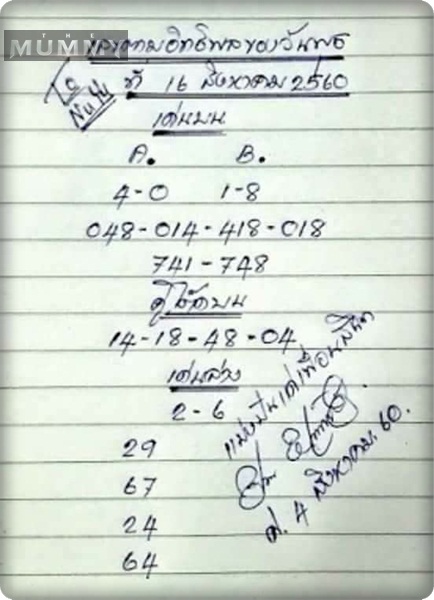 THE
MUMMY
เลขตามอิทธิพลของวันพุธ
ที่ 16 สิงหาคม 2560
เด่นบน
A. B.
4-0 1-8
048-014-418-018
741-748
คู่โต๊ดบน
14-18-48-04
เด่นล่าง
2-6
29
67
24
64
แบ่งปันแด่เพื่อนสนิท
ศ. 4 สิงหาคม. 60.